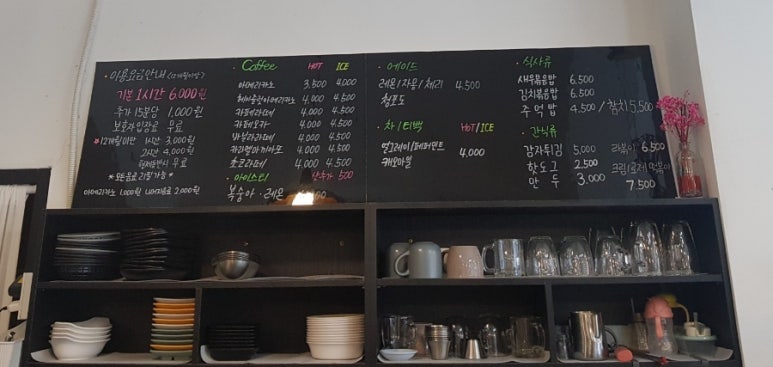 ·이용요금안내 (12개월이상)
기본 1시간 6.000원
추가 15분당 1,000원
보호자입장료 무료
*12개월미만 1시간 3,000원
2시간 4,000원
형제동반시 무료
*모든음료 리필가능*
아메리카노 1,000원 나머지음료 2,000원
·Coffee HOT ICE
아메리카노 3,500 4,000
헤이즐넛아메리카노 4,000 4,500
카페라떼 4,000 4,500
카페모카 4,000 4,500
바닐라라떼 4,000 4,500
카라멜마끼아또 4,000 4,500
초코라떼 4,000 4,500
·아이스티 샷추가 500
복숭아·레몬
·에이드
레몬/자몽/체리 4,500
청포도
·차/티백 HOT/ICE
얼그레이/페퍼민트 4,000
캐모마일
·식사류
새우볶음밥 6,500
김치볶음밥 6,500
주먹밥 4,500 / 참치 5,500
·간식류
감자튀김 5,000 라볶이 6,500
핫도그 2,500 크림/로제 떡볶이
만두 3,000 7,500